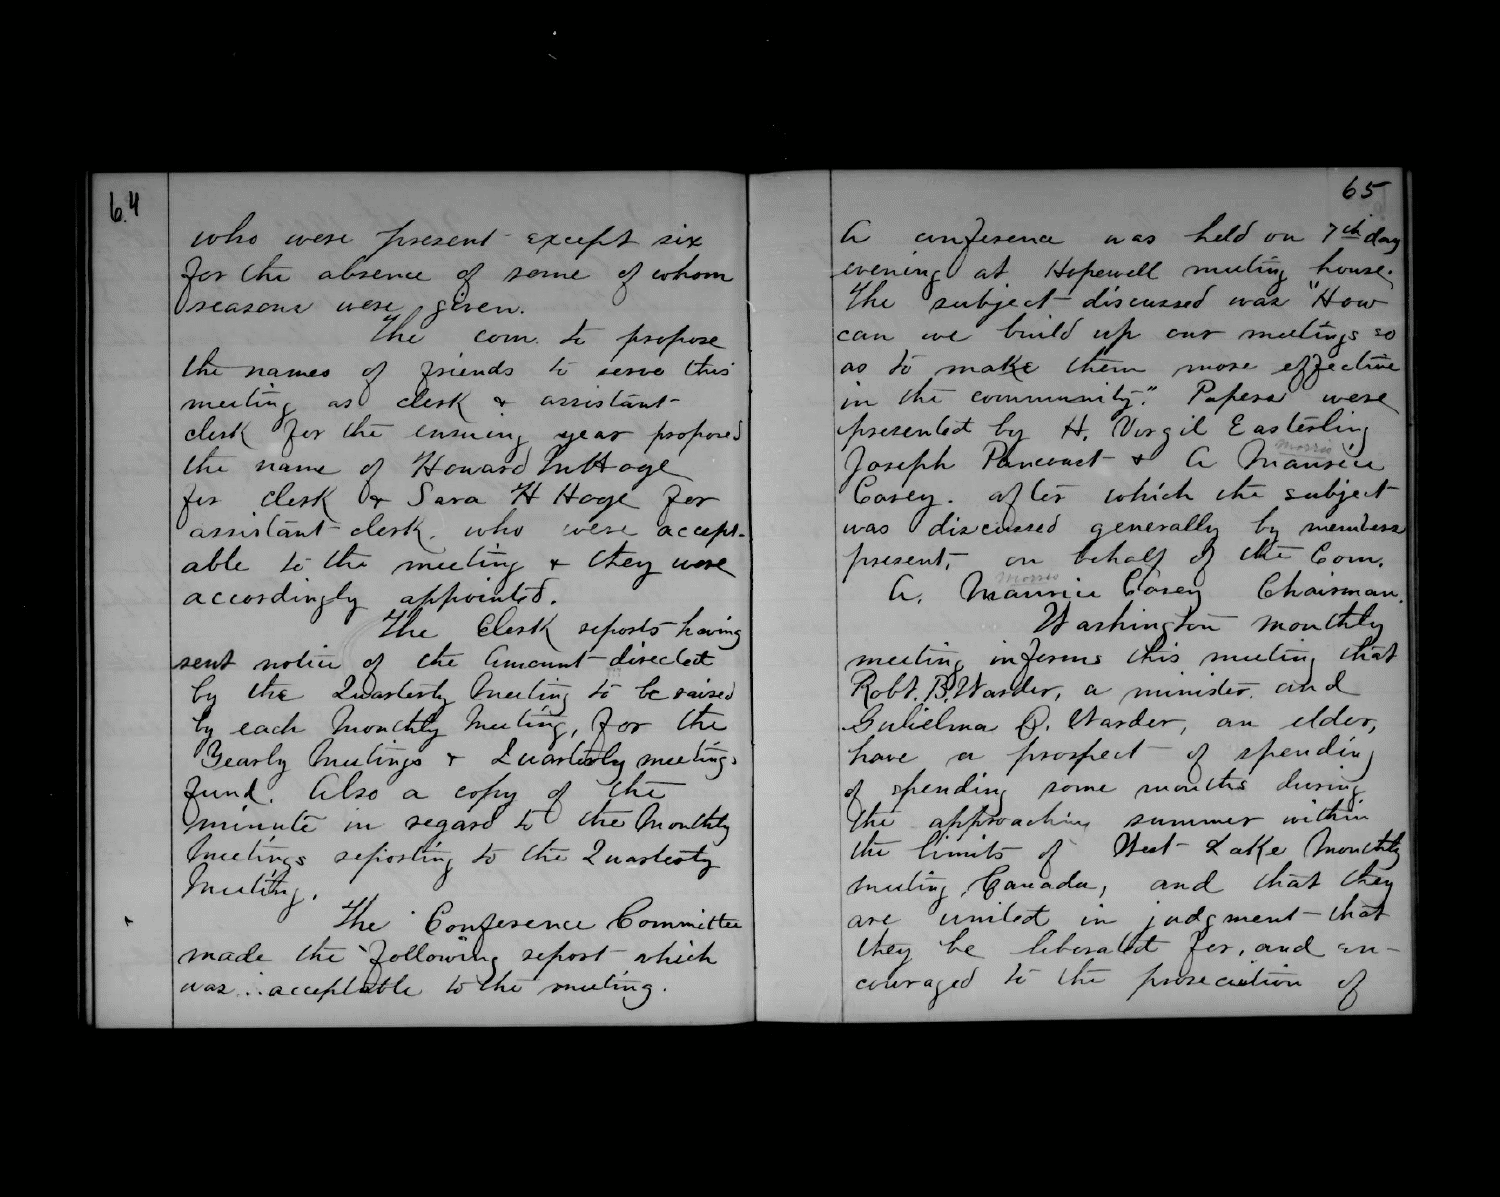 64
who were present except six
for the absence of some of whom
reasons were given.
The com. to propose
the names of friends to serve this
meeting as clerk & assistant
clerk for the ensuing year proposed
the name of Howard M Hoge
for clerk & Sara H Hoge for
assistant clerk. who were accept-
able to the meeting & they were
accordingly appointed.
The Clerk reports having
sent notice of the amount directed
by the Quarterly Meeting to be raised
by each Monthly Meeting, for the
Yearly Meetings & Quarterly meetings
fund. Also a copy of the
minute in regard to the Monthly
Meetings reporting to the Quarterly
Meeting.
The Conference Committee
made the following report which
was acceptable to the meeting.
65
A conference was held on 7th day
evening at Hopewell meeting house.
The subject discussed was "How
can we build up our meetings so
as to make them more effective
in the community." Papers were
presented by H. Virgil Easterling
Morris
Joseph Pancoast & A Maurice
Casey. after which the subject
was discussed generally by members
present, on behalf of the Com.
Morris
A. Maurice Casey Chairman.
Washington monthly
meeting informs this meeting that
Robt. B. Warder, a minister and
Gulielma D. Warder, an elder,
have a prospect of spending
of spending some months during
the approaching summer within
the limits of West Lake Monthly
meeting Canada, and that they
are united in judgment that
they be liberated for, and en-
couraged to the prosecution of